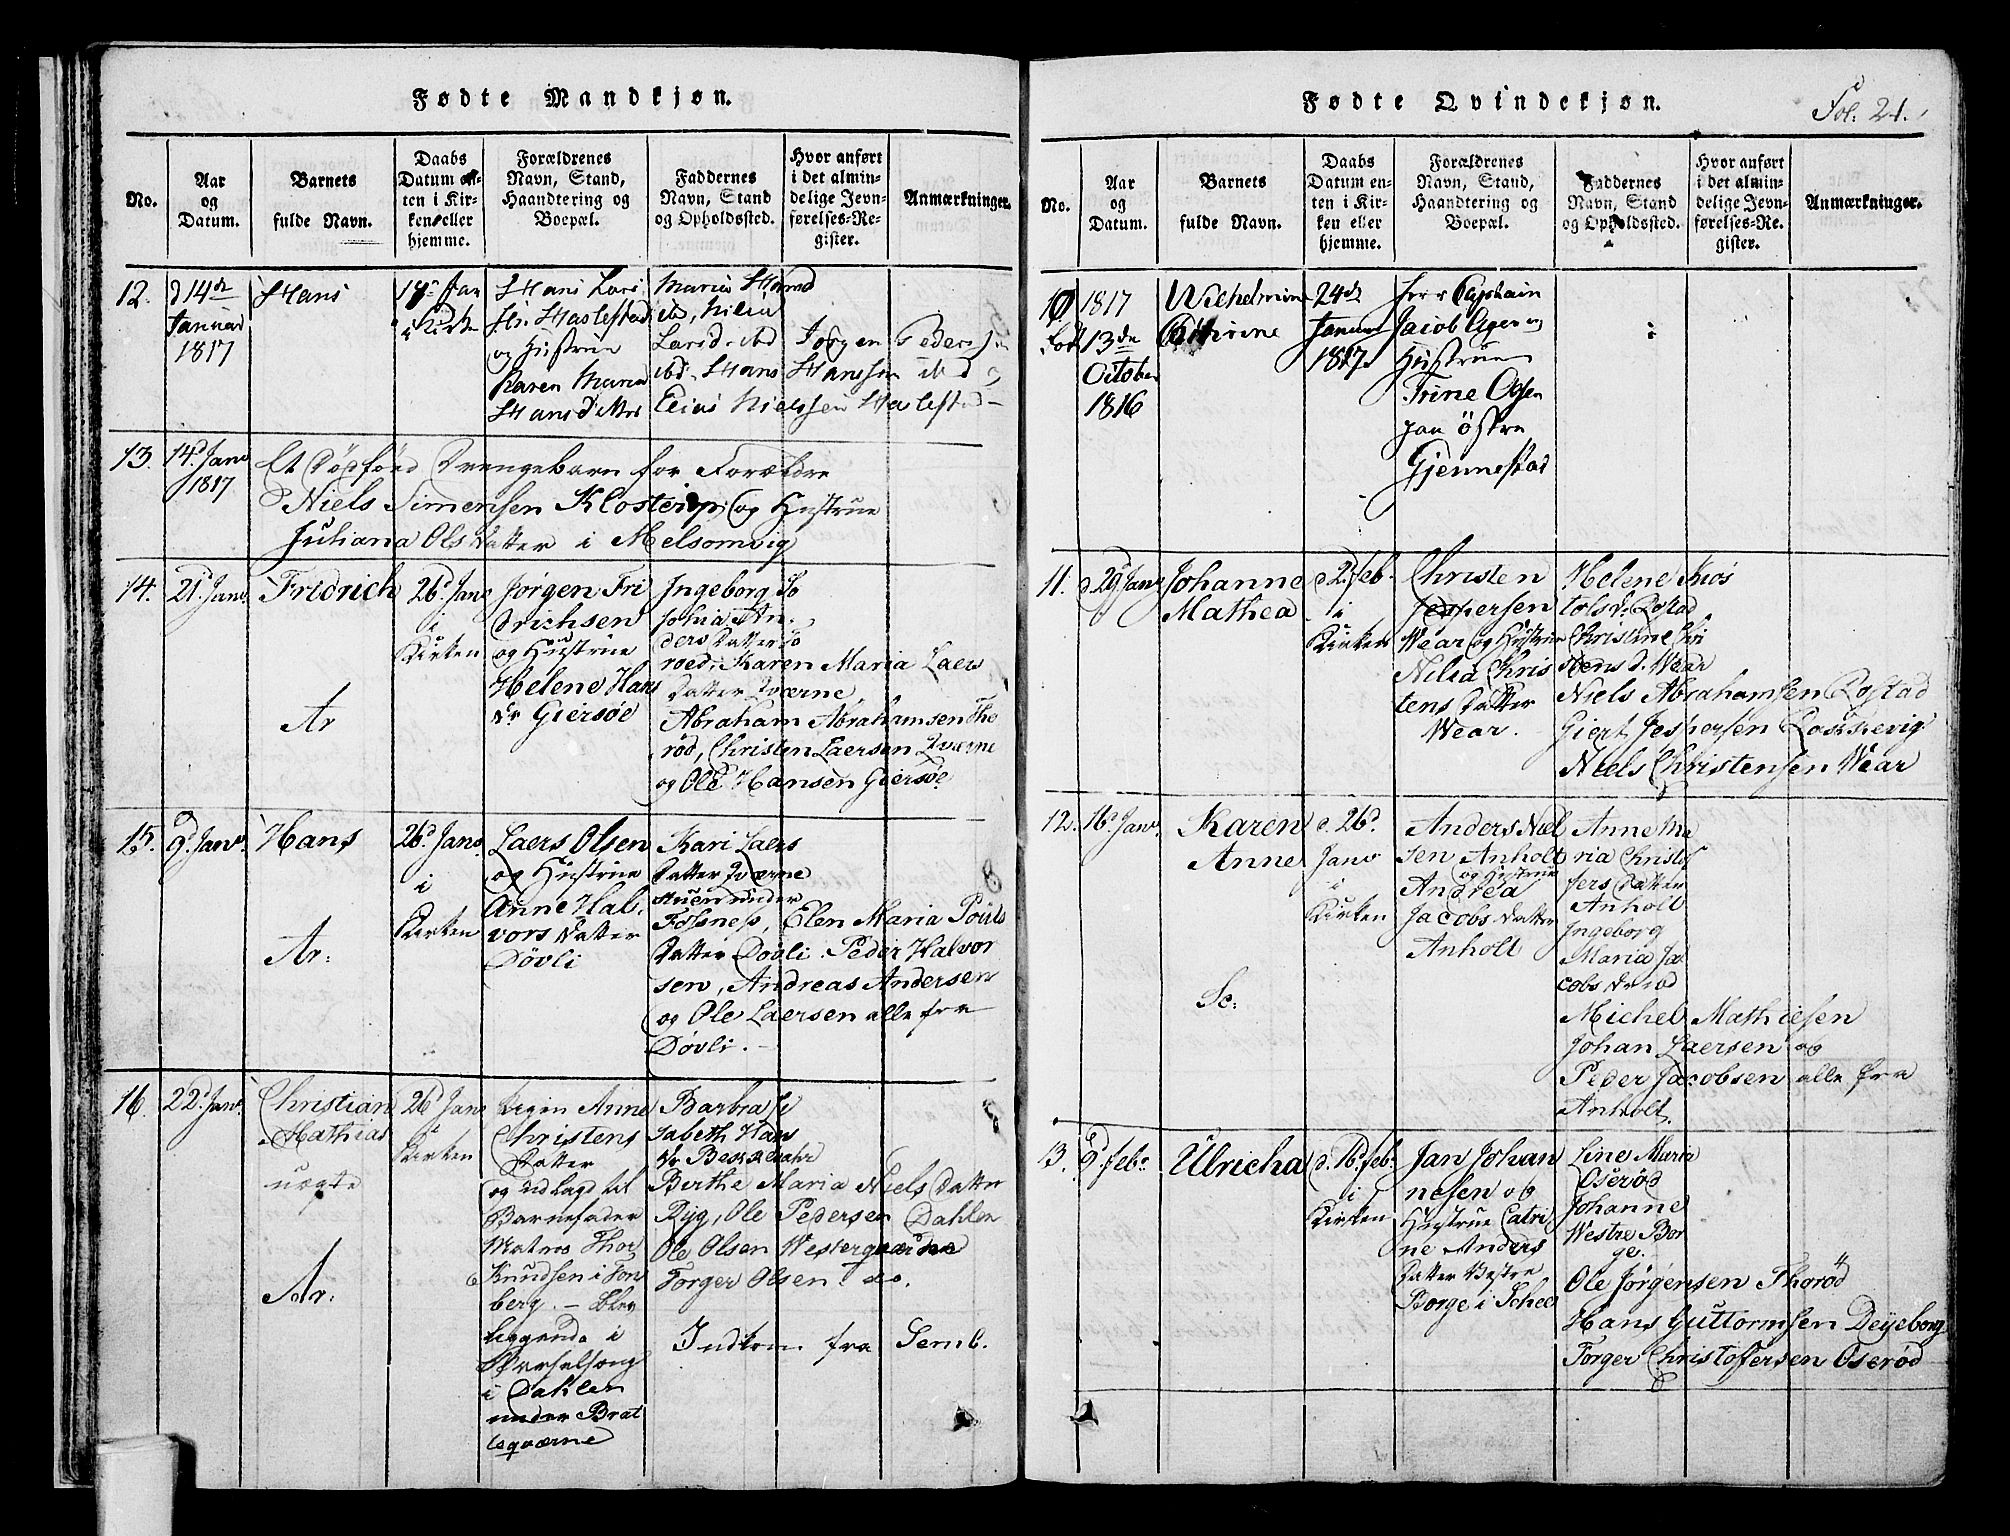 Fødte Mandkjøn.
No.
Aar
og
Datum.
Barnets
fulde Navn.
Daabs
Datum en-
ten i Kir-
ken eller
hjemme.
Forældrenes
Navn, Stand,
Haandtering og
Boepæl.
Faddernes
Navn, Stand
og Opholdssted.
Hvor anført
i det almin-
delige Jevn-
førelses-Re-
gister.
Anmærkninger.
12.
d 14de
Januar
1817
Hans
Jan
i Kirke
Hans Lars
Haslestad
og Hustrue
Karen Maria
Hansdatter
Maria
Jørgen Peders
Hans Hanssen ibd
Elias Nielssen Haslestad
13.
14d Janv
1817
Et Dødføed Drengebarn for Forældre
Niels Simensen Klosterip og Hustrue
Juliana Ols Datter i Melsomvig
14.
21d Janv.
Fridrich
Ar
26d Janv
i
Kirken
Jørgen Fri
drichsen
og Hustrue
Helene Hans
Dr Giersøe
Ingeborg So
phia An-
ders Datter Sø
roed, Karen Maria Laers
Datter Qværne
Abraham Abrahamsen Tho
rød, Christen Laersen Qværne
og Ole Hansen Giersøe
15.
9d Janv.
Hans
Ar:
26d Janv.
i
Kirken
Laers Olsen
og Hustrue
Anne Hal-
vors Datter
Døvli
Kari Laers
Datter Qværne
stuen under
Fossnes, Elen Maria Pouls
Datter Døvli. Peder Halvor
sen, Andreas Andersen
og Ole Laersen alle fra
Døvli.
16.
22d Janv.
Christian
Mathias
uægte
Ar:
26d Janv
i
Kirken
Pigen Anne
Christens
Datter
og udlagt til
Barnefader
Matros Thor
Knudsen i Ton
berg. - Blev
liggende i
Barselseng
i Dahlen
under Brat
sqværne
Barbra Li
sabeth Hans
Dr Bekkedahl
Berthe Maria Niels Datter
Ryg, Ole Pedersen Dahlen
Ole Olsen Westerqværne
Torger Olsen do.
Indkom fra Semb.
Fødte Qvindekjøn.
Fol: 21.
No.
Aar
og
Datum.
Barnets
fulde Navn.
Daabs
Datum en-
ten i Kir-
ken eller
hjemme.
Forældrenes
Navn, Stand,
Haandtering og
Boepæl.
Faddernes
Navn, Stand
og Opholdssted.
Hvor anført
i det almin-
delige Jevn-
førelses-Re-
gister.
Anmærkninger.
10
fød
1817
13de
October
1816
Wilhelmine
24de
Januar
1817
Herr Captain
Jacob Ager og
Hustrue
Trine Olsen
paa Østre
Gjennestad
11.
d 29 Janv
Johanne
Mathea
d 2. feb.
i
Kirken
Christen
Jespersen
Wear og Hustrue
Nilia Chris
tens Datter
Wear.
Helene Kios
tols Dr Rostad
Christine Chri
stens d. Wear
Niels Abrahamsen Rostad
Giert Jespersen Roskevig
Niels Christensen Wear
12.
16d Janv.
Karen
Anne
Sc:
d. 26d
Janv
i
Kirken
Anders Niel
sen Anholt
og Hustrue
Andrea
Jacobs Datter
Anholt
Anne Ma
ria Christof
fers Datter
Anholt
Ingeborg
Maria Ja
cobs Dr ibd
Michel Mathiesen
Johan Laersen og
Peder Jacobsen alle fra
Anholt.
13.
9d feb.
Ulricha
d. 16d feb.
i
Kirken
Jan Johan
nesen og
Hustrue Catri
ne Anders
Datter Vestre
Borge i Schee
Line Maria
Oserød
Johanne
Westre Bor
ge.
Ole Jørgensen Thorød
Hans Guttormsen Deyeborg
Torger Christoffersen Oserød